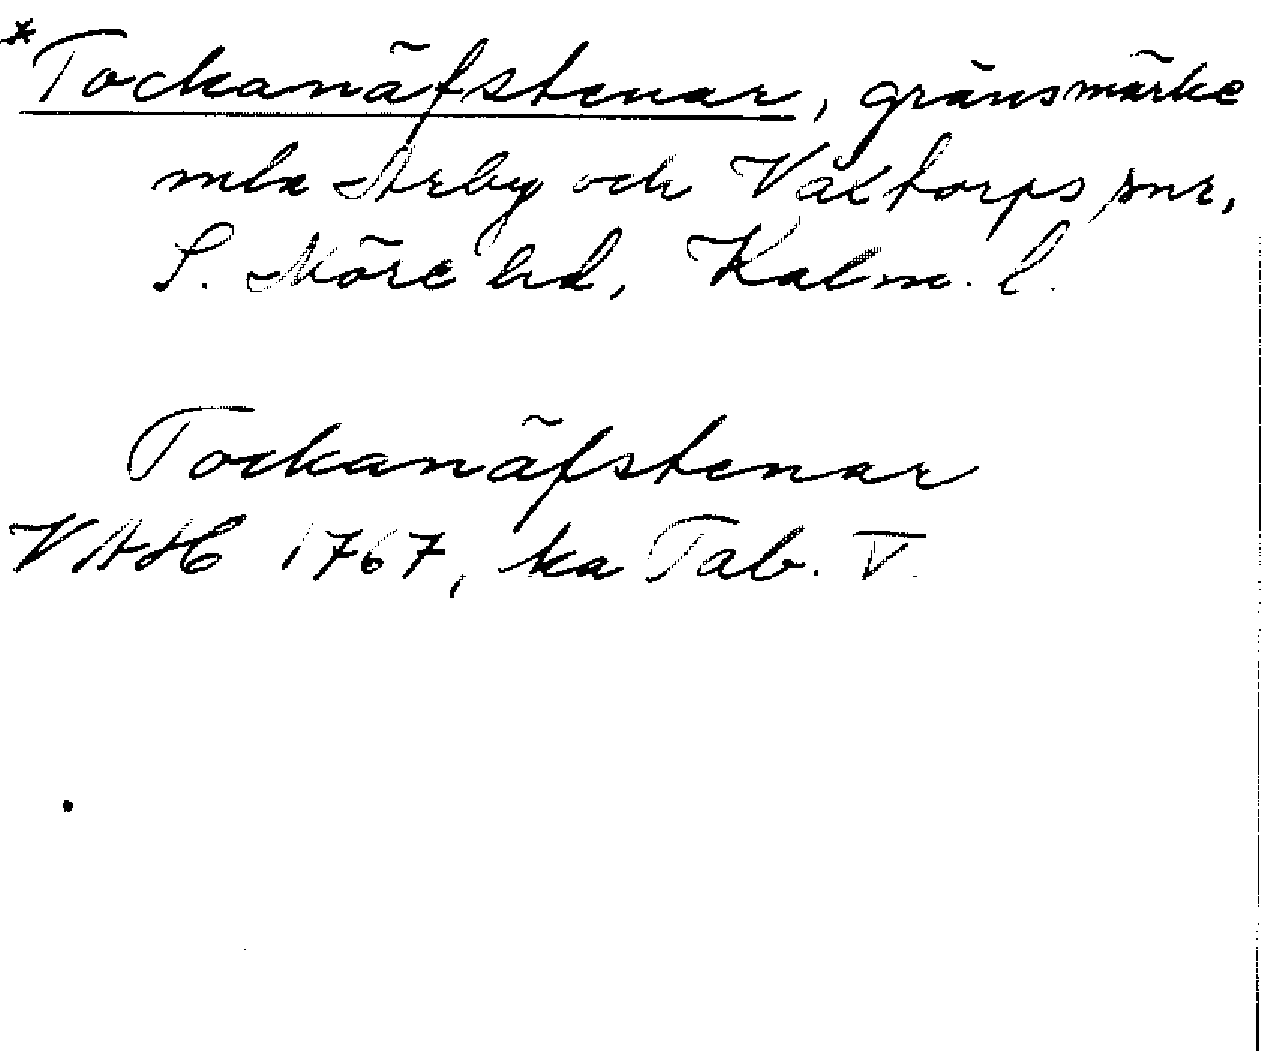 *Tockanäfstenar, gränsmärke
mla Arby och Växtorps snr,
S. Möre hd, Kalm. l.
Tockanäfstenar
VAH 1767, ka Tab. V.